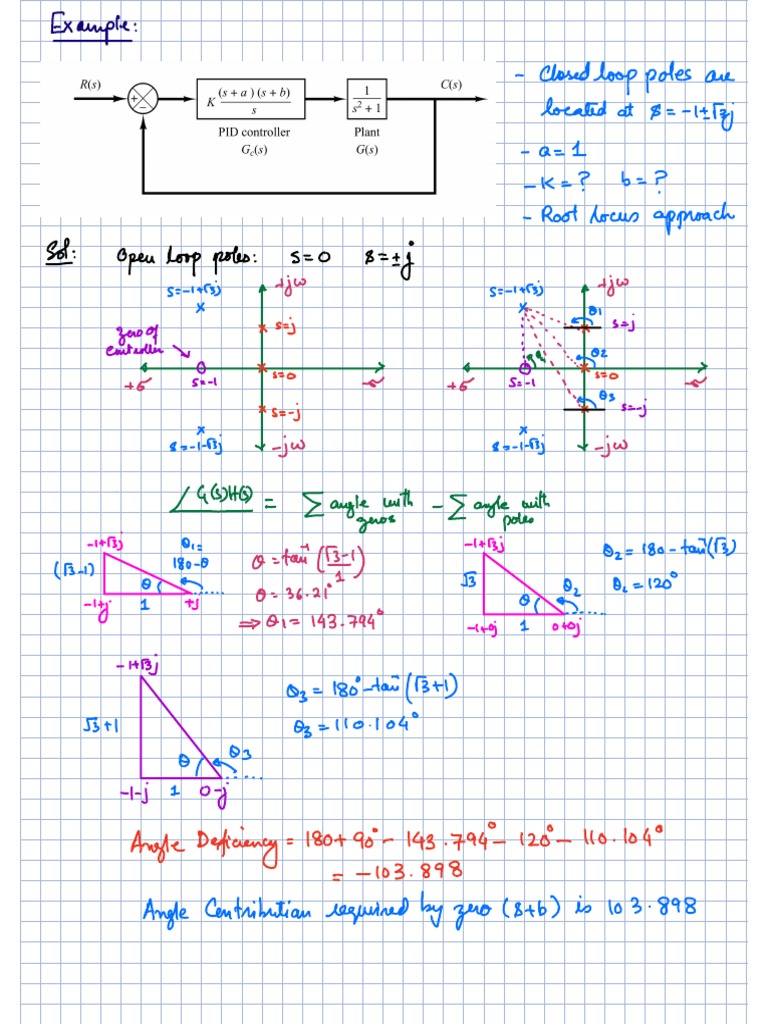 Example:
R(s)
K (s + a)(s + b) / s
1 / s² + 1
C(s)
+
−
PID controller
Plant
Gc(s)
G(s)
- Closed loop poles are
located at s = -1±√3j
- a = 1
- K = ? b = ?
- Root locus approach
Sol: Open loop poles: s=0 s=±j
s=-1+√3j
+jω
s=j
zero of
controller
s=-1
s=0
+σ
-σ
s=-j
s=-1-√3j
-jω
s=-1+√3j
+jω
θ1
s=j
θ2
s=-1
s=0
+σ
-σ
θ3
s=-j
s=-1-√3j
-jω
∠G(s)H(s) = Σ angle with zeros - Σ angle with poles
-1+√3j
θ1 = 180-θ
(√3-1)
θ
-1+j
1
+j
θ = tan⁻¹(√3-1 / 1)
θ = 36.21°
⇒ θ1 = 143.794°
-1+√3j
√3
θ
θ2
-1+0j
1
0+0j
θ2 = 180 - tan⁻¹(√3)
θ2 = 120°
-1+√3j
√3+1
θ
θ3
-1-j
1
0-j
θ3 = 180° - tan⁻¹(√3+1)
θ3 = 110.104°
Angle Deficiency = 180+90° - 143.794° - 120° - 110.104°
= -103.898
Angle Contribution required by zero (s+b) is 103.898